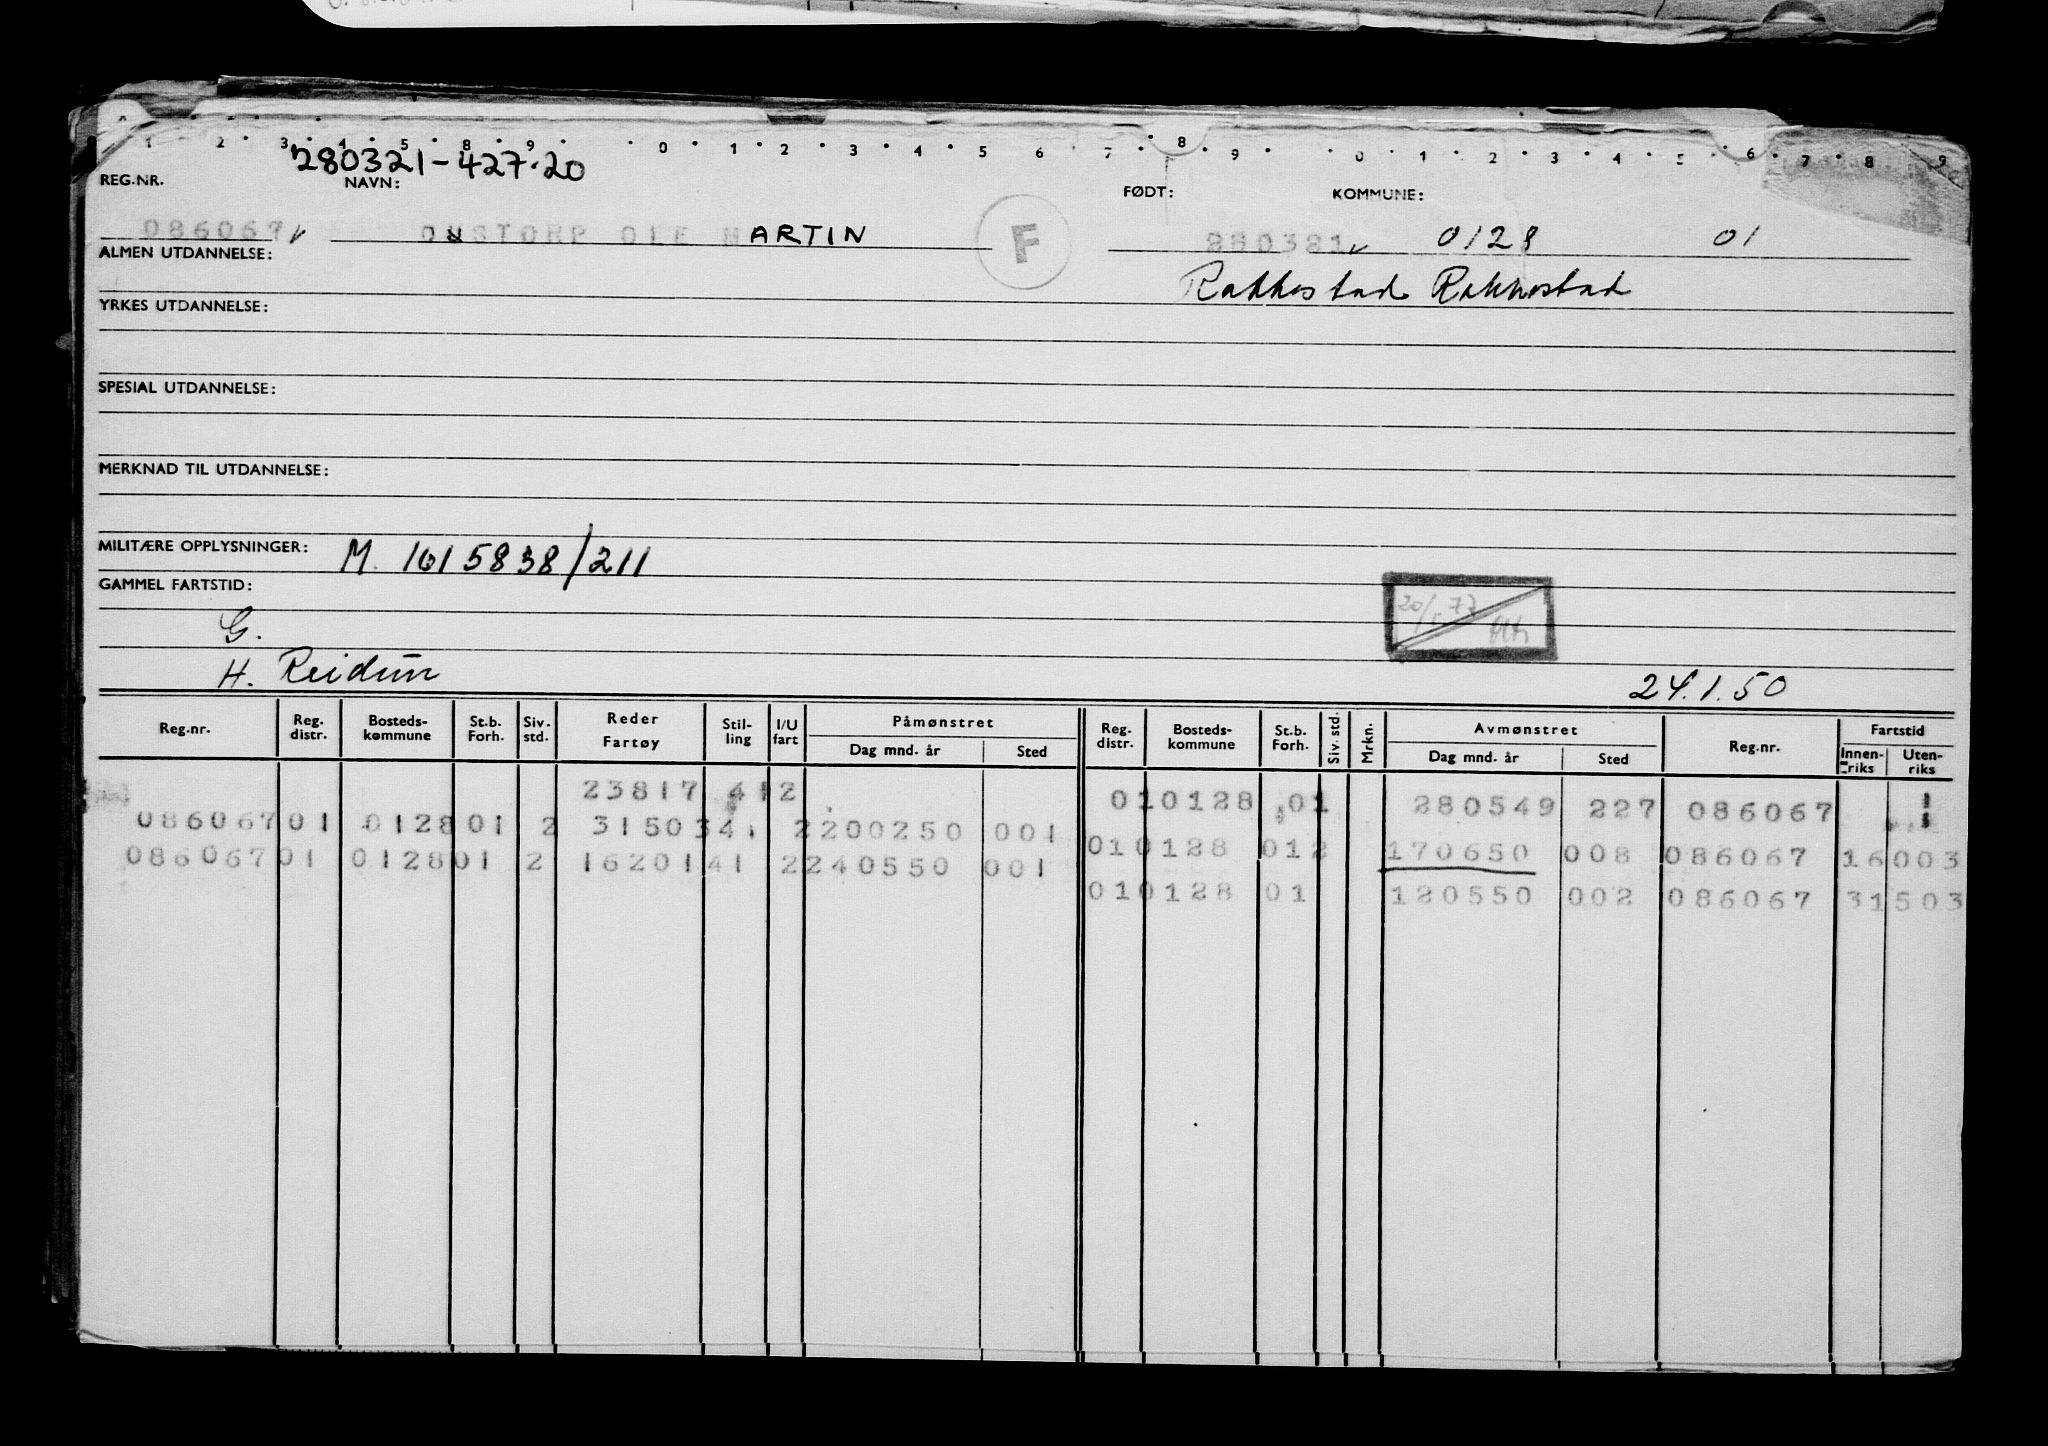 1 2 3 4 5 8 9 0 1 2 3 4 5 6 7 8 9 0 1 2 3 4 5 6 7 8 9
280321-427.20
REG.NR. NAVN: FØDT: KOMMUNE:
086067 OUSTORP OLE MARTIN F 280321 0128 01
ALMEN UTDANNELSE: Rakkestad Rakkestad
YRKES UTDANNELSE:
SPESIAL UTDANNELSE:
MERKNAD TIL UTDANNELSE:
MILITÆRE OPPLYSNINGER: M. 1615838/211
GAMMEL FARTSTID:
G.
H. Reidun
24.1.50
Reg.nr. Reg. distr. Bosteds- kommune St.b. Forh. Siv. std. Reder Fartøy Stil- ling I/U fart Påmønstret Dag mnd. år Sted Reg. distr. Bosteds- kommune St.b. Forh. Siv. std. Mrkn. Avmønstret Dag mnd. år Sted Reg.nr. Fartstid Innen- riks Uten- riks
23817 412 010128 01 280549 227 086067
086067 01 0128 01 2 31503 41 2 200250 001 010128 012 170650 008 086067 16003
086067 01 0128 01 2 16201 41 2 240550 001 010128 01 120550 002 086067 31503